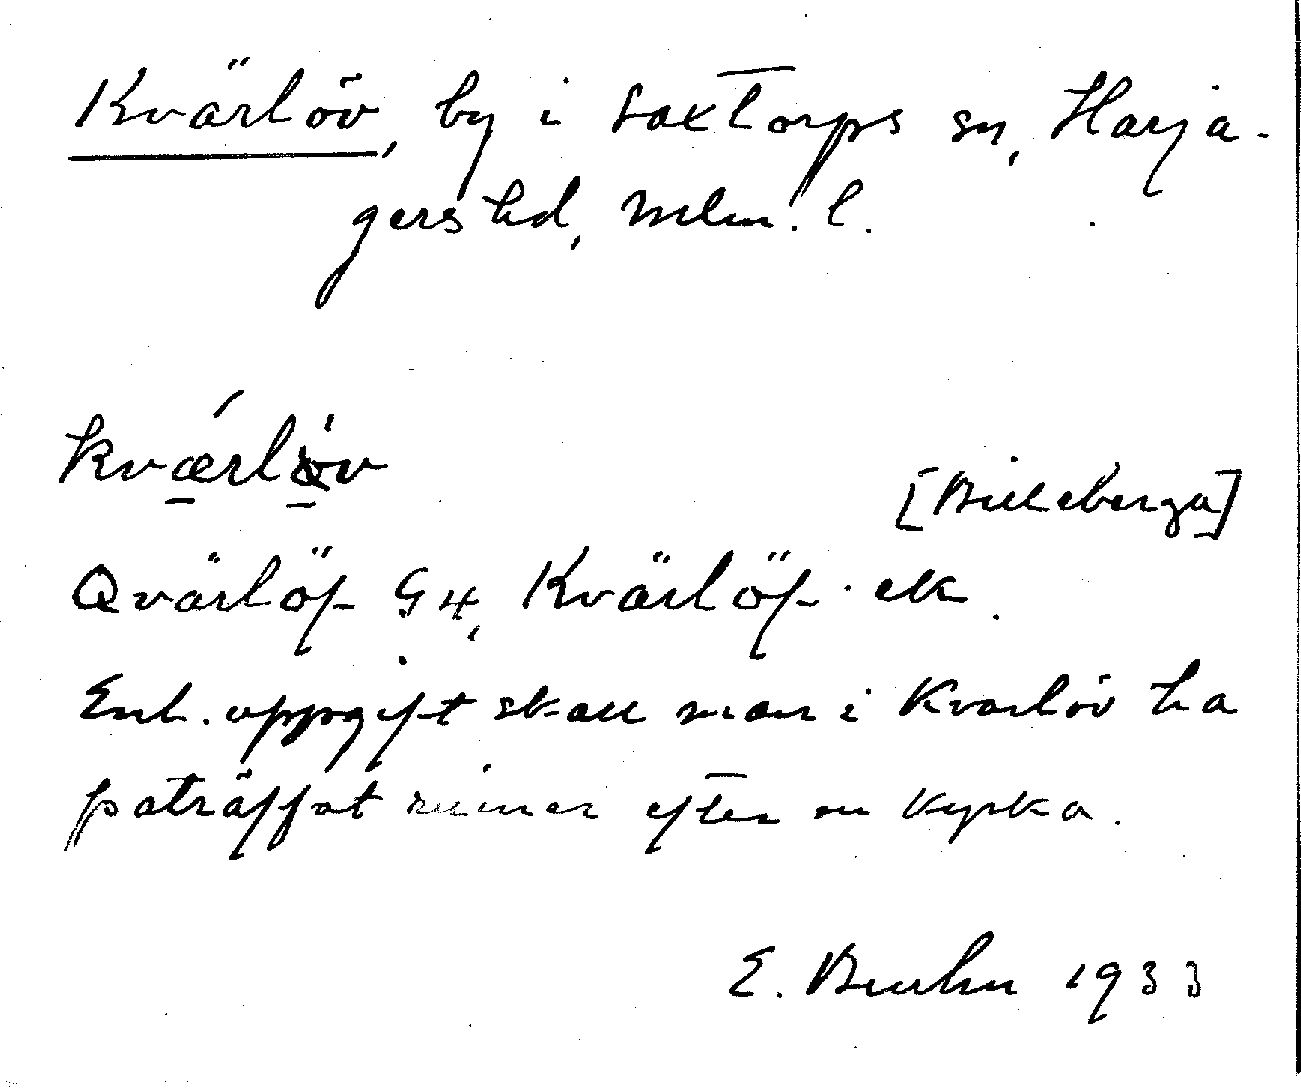 Kvärlöv, by i Saxtorps sn, Harja-
gers hd, Mlm. l.
kværløv
[Billeberga]
Qvärlöf G4, Kvärlöf ek.
Enl. uppgift skall man i Kvärlöv ha
påträffat ruiner efter en kyrka.
E. Bruhn 1933